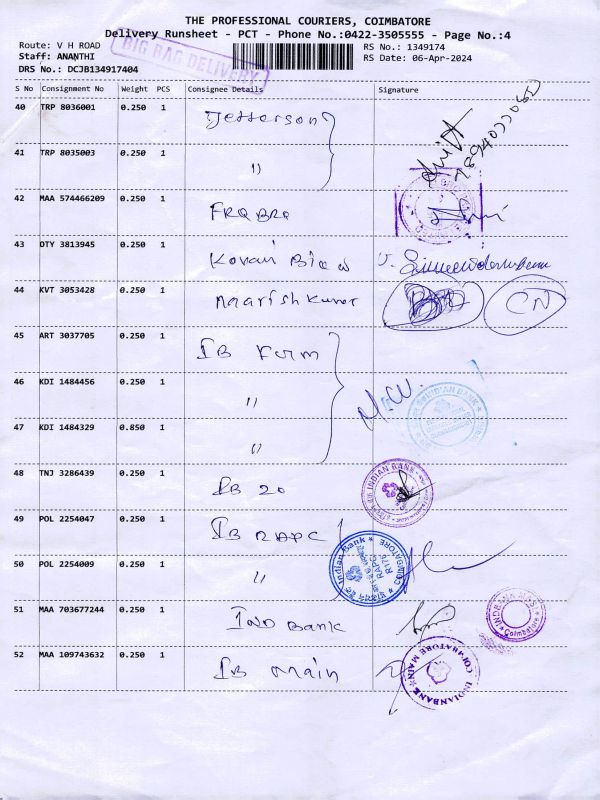 THE PROFESSIONAL COURIERS, COIMBATORE
Delivery Runsheet - PCT - Phone No.:0422-3505555 - Page No.:4
Route: V H ROAD
RS No.: 1349174
Staff: ANANTHI
RS Date: 06-Apr-2024
DRS No.: DCJB134917404
BIG BAG DELIVERY
S No Consignment No Weight PCS Consignee Details Signature
40 TRP 8036001 0.250 1 Jefferson
41 TRP 8035003 0.250 1 "
42 MAA 574466209 0.250 1
43 DTY 3813945 0.250 1
44 KVT 3053428 0.250 1 Naarish kumar CN
45 ART 3037705 0.250 1 IB Form
46 KDI 1484456 0.250 1 "
INDIAN BANK
47 KDI 1484329 0.850 1 "
48 TNJ 3286439 0.250 1 IB 20
INDIAN BANK
49 POL 2254047 0.250 1 IB RAPC
Indian Bank
RAPC
R176
COIMBATORE
50 POL 2254009 0.250 1 "
51 MAA 703677244 0.250 1 IND Bank
Coimbatore
52 MAA 109743632 0.250 1 IB Main
INDIANBANK COIMBATORE MAIN